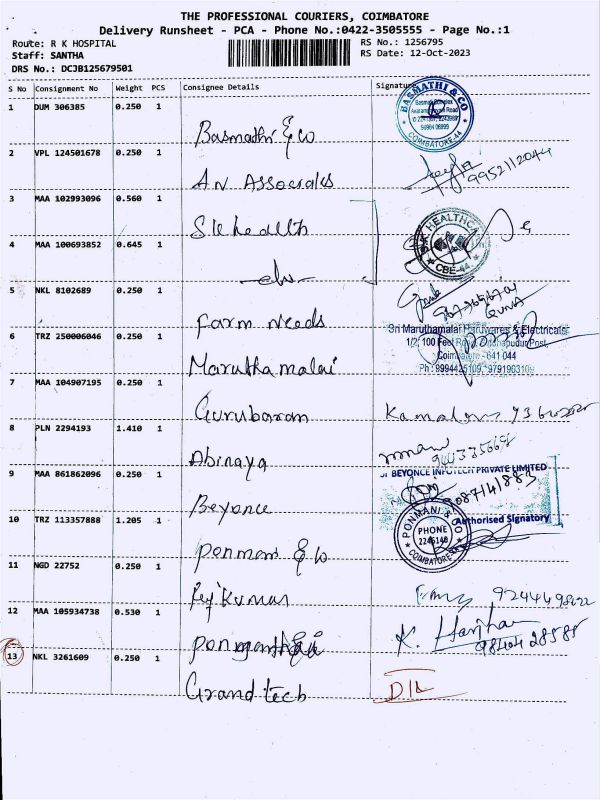 THE PROFESSIONAL COURIERS, COIMBATORE
Delivery Runsheet - PCA - Phone No.:0422-3505555 - Page No.:1
Route: R K HOSPITAL
RS No.: 1256795
Staff: SANTHA
RS Date: 12-Oct-2023
DRS No.: DCJB125679501
S No Consignment No Weight PCS Consignee Details Signature
1 DUM 306385 0.250 1
Basmathi & co
BASMATHI & CO
COIMBATORE-44
2 VPL 124501678 0.250 1
AN Associates
9952112044
3 MAA 102993096 0.560 1
SK health
S.K. HEALTHCA
CBE-44
4 MAA 100693852 0.645 1
5 NKL 8102689 0.250 1
farm needs
GUNA
6 TRZ 250006046 0.250 1
Maruthamalai
Sri Maruthamalai Hardwares & Electricals
1/2, 100 Feet Road, Post,
Coimbatore - 641 044
Ph : 9994425109, 9791903109
7 MAA 104907195 0.250 1
Gurubaram
8 PLN 2294193 1.410 1
Abinaya
9 MAA 861862096 0.250 1
Beyonce
BEYONCE INFOTECH PRIVATE LIMITED
9087141883
Authorised Signatory
10 TRZ 113357888 1.205 1
ponmani & co
PONMANI & CO
PHONE
2246140
COIMBATORE
11 NGD 22752 0.250 1
Rajkumar
12 MAA 105934738 0.530 1
K. Harihan
98404 28585
13 NKL 3261609 0.250 1
Grand tech
D/L